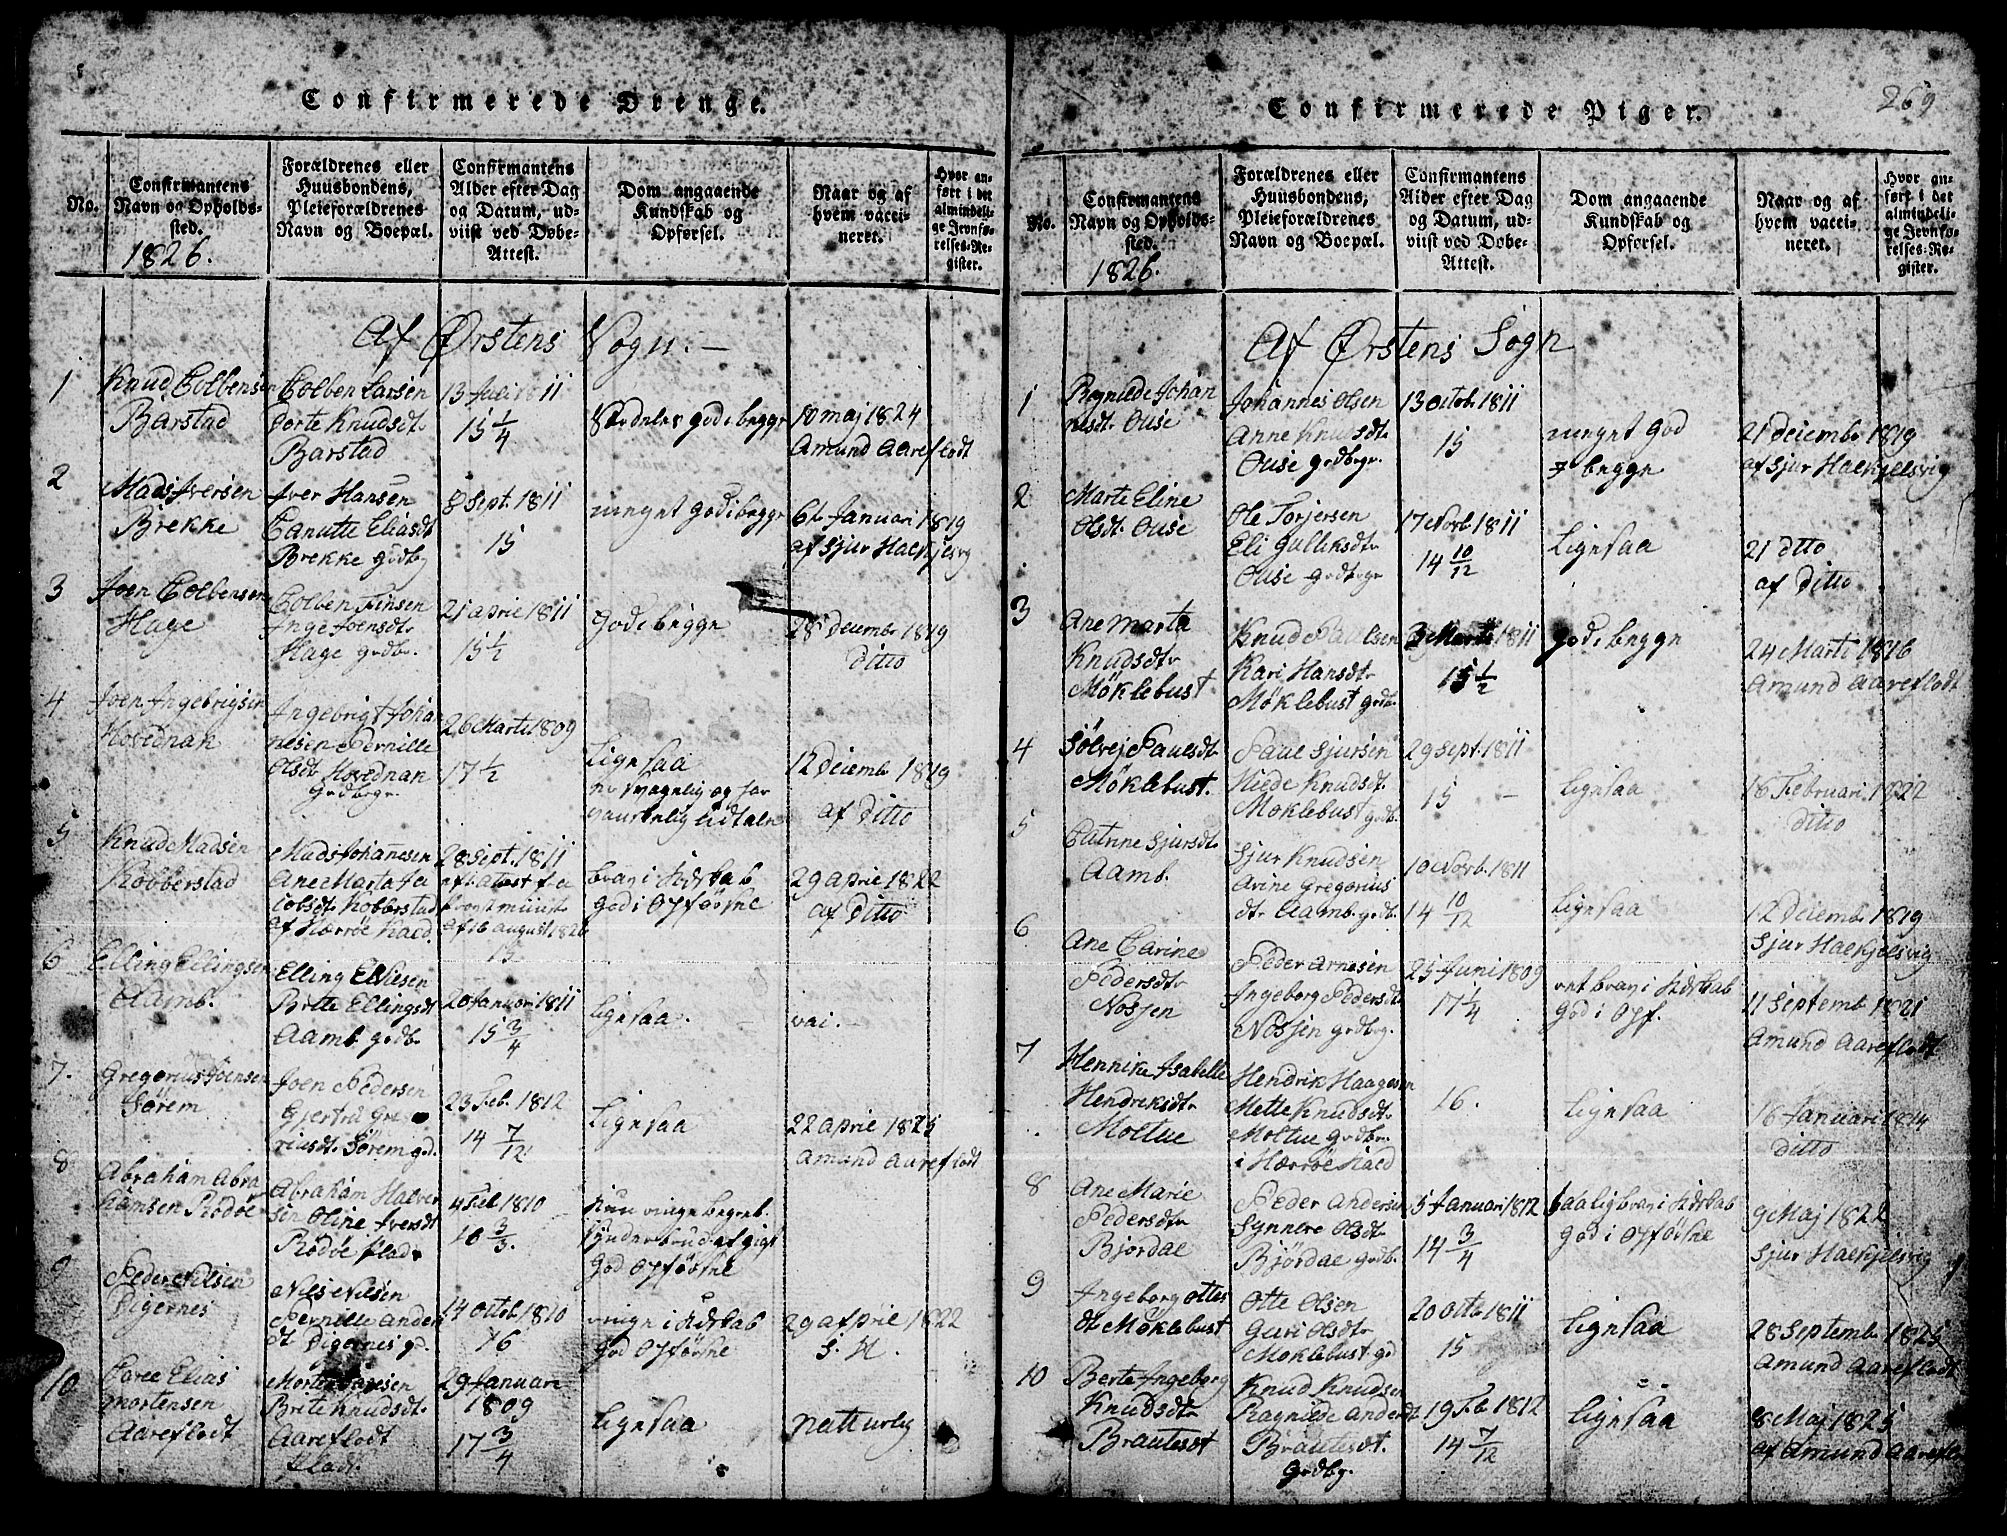 Confirmerede Drenge.
No.
Confirmantens
Navn og Opholds-
sted.
1826.
Forældrenes eller
Huusbondens,
Pleieforældrenes
Navn og Boepæl.
Confirmantens
Alder efter Dag
og Datum, ud-
viist ved Døbe-
Attest.
Dom angaaende
Kundskab og
Opførsel.
Naar og af
hvem vacci-
neret.
Hvor an-
ført i det
almindeli-
ge Jevnfø-
relses-Re-
gister.
Af Ørstens Sogn. —
1
Knud Colbensen
Barstad
Colben Larsen
Dorte Knudsdt.
Barstad
13 Juli 1811
15 1/4
Særdeles god i begge
10 maj 1824
Amund Aareflodt
2
Mads Iversen
Brekke
Iver Hansen
Canutte Eliasdt
Brekke Gdbg
8 Sept. 1811
15
meget God i begge
6t Januari 1819
af Sjur Haekjelsvig
3
Joen Colbensen
Hage
Colben Finsen
Inge Joensdt.
Hage grdbr.
21 aprie 1811
15 1/2
God i begge
28 Decemb 1819
Ditto
4
Joen Ingebrigsen
Hovednak
Ingebrigt Johan
nesen Pernille
Olsdt. Hovednan
Grdbegr.
26 Marti 1809
17 1/2
Lignsaa
er svagelig og har
vanskelig Udtale
12 Decemb. 1819
af Ditto
5
Knud Madsen
Kobberstad
Mads Johannesen
Ane Marta Ja
cobsdt. Kobberstad
af Hærröe Kaed.
28 Sept. 1811
eft. atest fra
Provst
af 16 august 1826
15
brav i Kdskab
God i Opføsne
29 aprie 1822
af Ditto
6
Elling Ellingsen
Aamb.
Elling
Britte Ellingsdt
Aamb. grdb.
20 Januari 1811
15 3/4
Lignsaa.
vac. —
7.
Gregorius Joensen
Sørem
Joen Pedersen
Gjertru
riusdt. Sørem gd.
23 Feb. 1812
14 7/12
Lignsaa
22 aprie 1825
Amund Aareflodt
8
Abraham Abra
hamsen Rödöe
Abraham Halver
sen Oline Iversdt
Rödöe Flad.
4 Feb 1810
16 3/3.
Kun ringe begreb.
God Opføsne
9
Peder Nilsen
Digernes
Niels Nilsen
Pernille Ander
dt Digernes gd.
14 Octob. 1810
16
ringe i Kdskab
God Opføsne
29 aprie 1822
S. H.
10
Elias
Mortensen
Aareflodt
Morten
Brite Knudsdt.
Aareflodt
Flad.
29 Januari
1809
17 3/4
Lignsaa
Natturlig
Confirmerede Piger.
269
No.
Confirmantens
Navn og Opholds-
sted.
1826.
Forældrenes eller
Huusbondens,
Pleieforældrenes
Navn og Boepæl.
Confirmantens
Alder efter Dag
og Datum, ud-
viist ved Døbe-
Attest.
Dom angaaende
Kundskab og
Opførsel.
Naar og af
hvem vacci-
neret.
Hvor an-
ført i det
almindeli-
ge Jevnfø-
relses-Re-
gister.
Af Ørstens Sogn
1
Regnilde Johan
nesdt. Ouse
Johannes Olsen
Anne Knudsdt.
Ouse Grdbegr.
13 octob. 1811
15
meget God
i begge
21 Decemb 1819
af Sjur Haekjelsvig
2
Marte Eline
Olsdt. Ouse
Ole Torjersen
Eli Gulliksdt.
Ouse grdbegr
17 Novb. 1811
14 10/12
Lignsaa
21 Ditto
af Ditto
3
Ane Marta
Knudsdtr
Möklebust
Knud Paulsen
Kari Hansdt.
Möklebust grdb.
3 Marti 1811
15 1/2
God i begge
24 Marti 1816
Amund Aareflodt
4
Sölvej Paulsdt.
Möklebust.
Paul Sjursen
Hilde Knudsdt.
Möklebust grdb.
29 Sept. 1811
15 —
Lignsaa
16 Februari 1822
Ditto
5
Catrine Sjursdt.
Aamb.
Sjur Knudsen
Arine Gregorius
dt. Aamb. grdb.
10 Novb. 1811
14 10/12
Lignsaa
12 Decemb 1819
Sjur Haekjelsvig
6
Ane Carine
Pedersdtr
Nossen
Peder Arnesen
Ingeborg Pedersdt.
Nossen grdbeg.
25 Juni 1809
17 1/4
ret brav i Kdskab
God i Opf.
11 Septemb. 1821
Amund Aareflodt
7
Hennika Isabelle
Hendriksdt.
Moltue
Hendrik Haagesen
Mette Knudsdt.
Moltue Grdbr.
i Hærröe Kaed
16.
Lignsaa
16 Januari 1814
Ditto
8
Ane Marie
Pedersdtr
Björdae
Peder Andersen
Synnere Olsdt.
Björdae grdb.
5 Januari 1812
14 3/4
taalig brav i Kdskab
God i Opføsne
9 Maj 1822
Sjur Haekjelsvig
9
Ingeborg Ottes
dt. Möklebust
Otte Olsen
Guri Olsdt.
Möklebust gd
20 octb 1811
15
Lignsaa
28 Septemb 1825
Amund Aareflodt
10
Berte Ingeborg
Knudsdt.
Brautesdt
Knud Knudsen
Ragnilde Andersdt
Brautesdt.
Grdbg.
19 Feb 1812
14 7/12
Lignsaa
8 Maj 1825
af Amund Aareflo